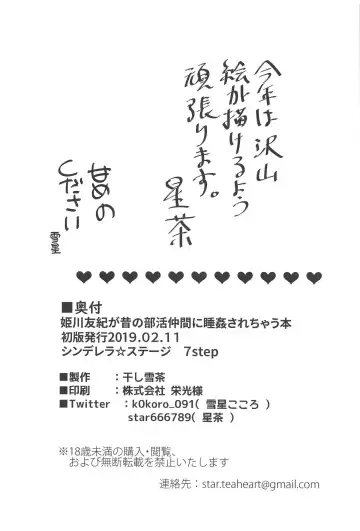 今年は沢山
絵が描けるよう
頑張ります。
星茶
甘めの
ください
雪星
♥♥♥♥♥♥♥♥♥♥♥
■奥付
姫川友紀が昔の部活仲間に睡姦されちゃう本
初版発行2019.02.11
シンデレラ☆ステージ 7step
■製作 :干し雪茶
■印刷 :株式会社 栄光様
■Twitter :k0koro_091( 雪星こころ )
star666789( 星茶 )
※18歳未満の購入・閲覧、
および無断転載を禁止いたします
連絡先:star.teaheart@gmail.com